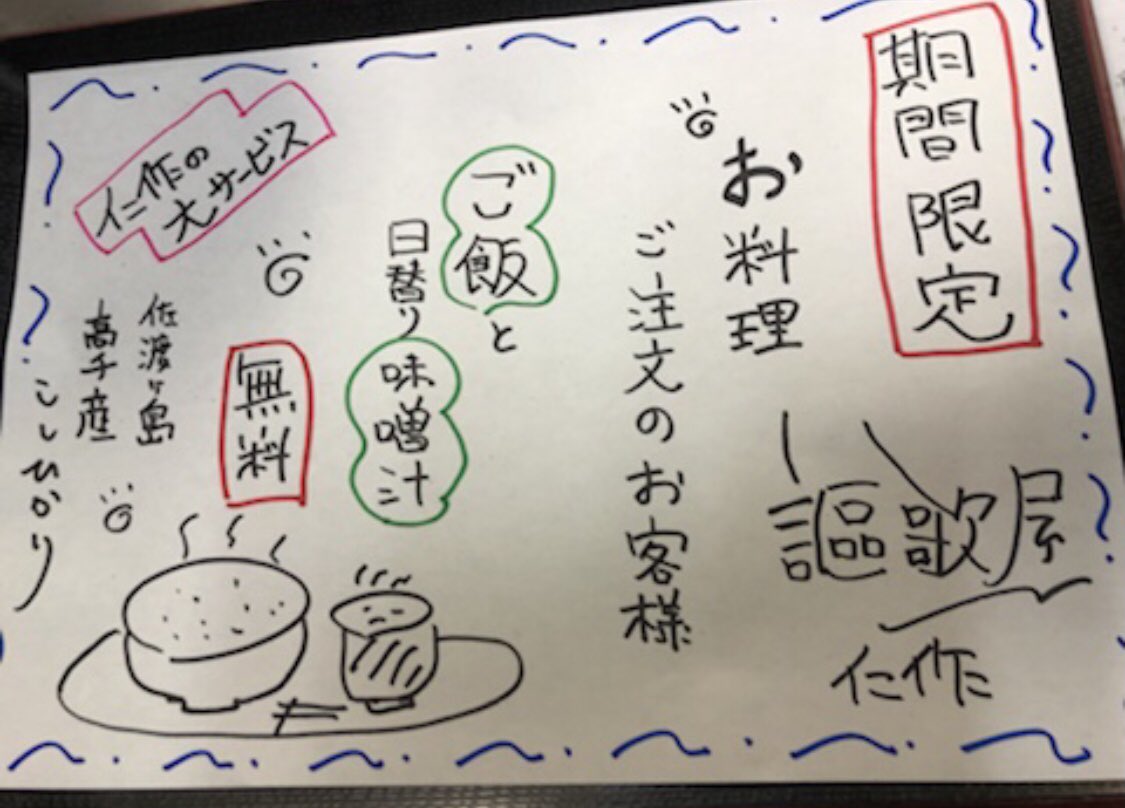 期間限定
お料理
ご注文のお客様
ご飯と
日替り味噌汁
無料
仁作の
大サービス
佐渡ヶ島
高千産
こしひかり
謳歌屋
仁作